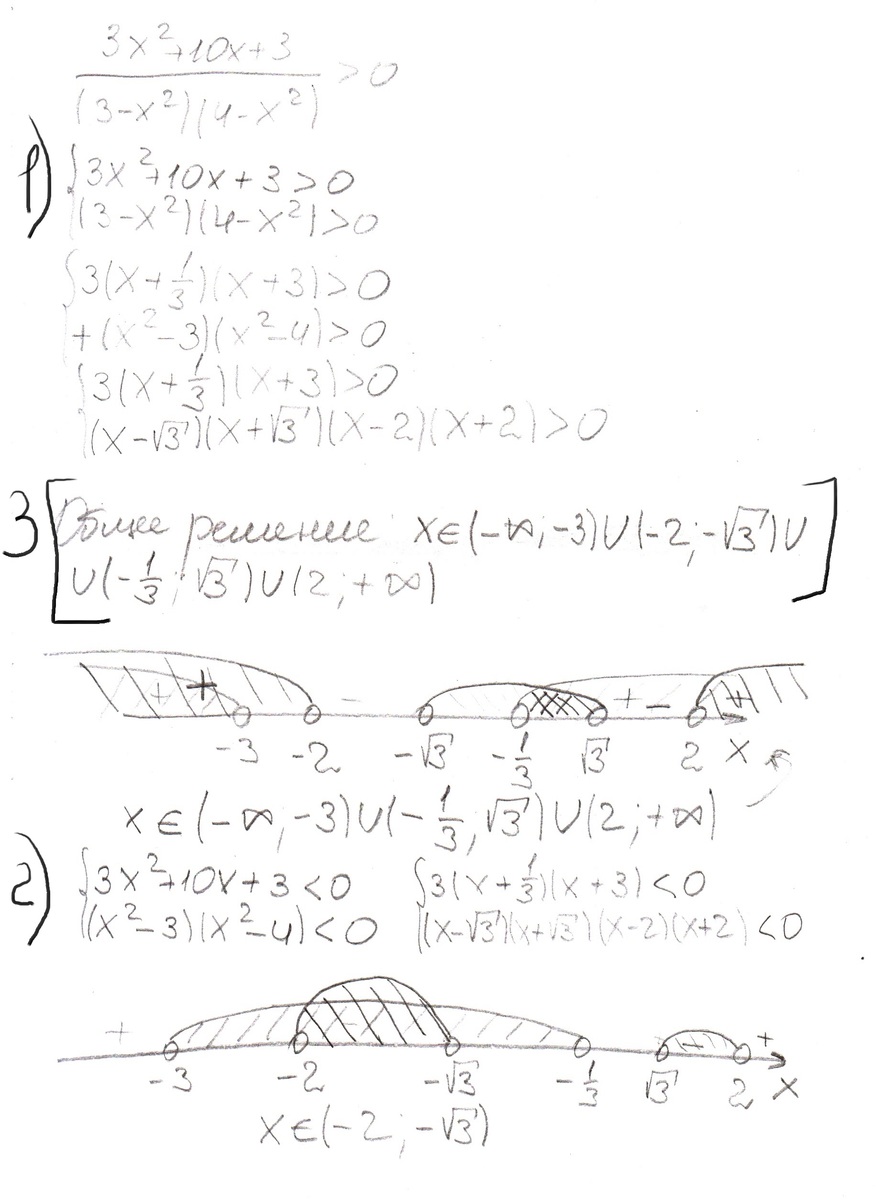 3x²+10x+3
(3-x²)(4-x²)
>0
1)
{3x²+10x+3>0
(3-x²)(4-x²)>0
{3(x+1/3)(x+3)>0
+(x²-3)(x²-4)>0
{3(x+1/3)(x+3)>0
(x-√3)(x+√3)(x-2)(x+2)>0
3 [Общее решение: x∈(-∞;-3)∪(-2;-√3)∪
∪(-1/3;√3)∪(2;+∞)]
+ + - + - +
-3 -2 -√3 -1/3 √3 2 x
x∈(-∞;-3)∪(-1/3;√3)∪(2;+∞)
2) {3x²+10x+3<0 {3(x+1/3)(x+3)<0
(x²-3)(x²-4)<0 (x-√3)(x+√3)(x-2)(x+2)<0
+ - + +
-3 -2 -√3 -1/3 √3 2 x
x∈(-2;-√3)